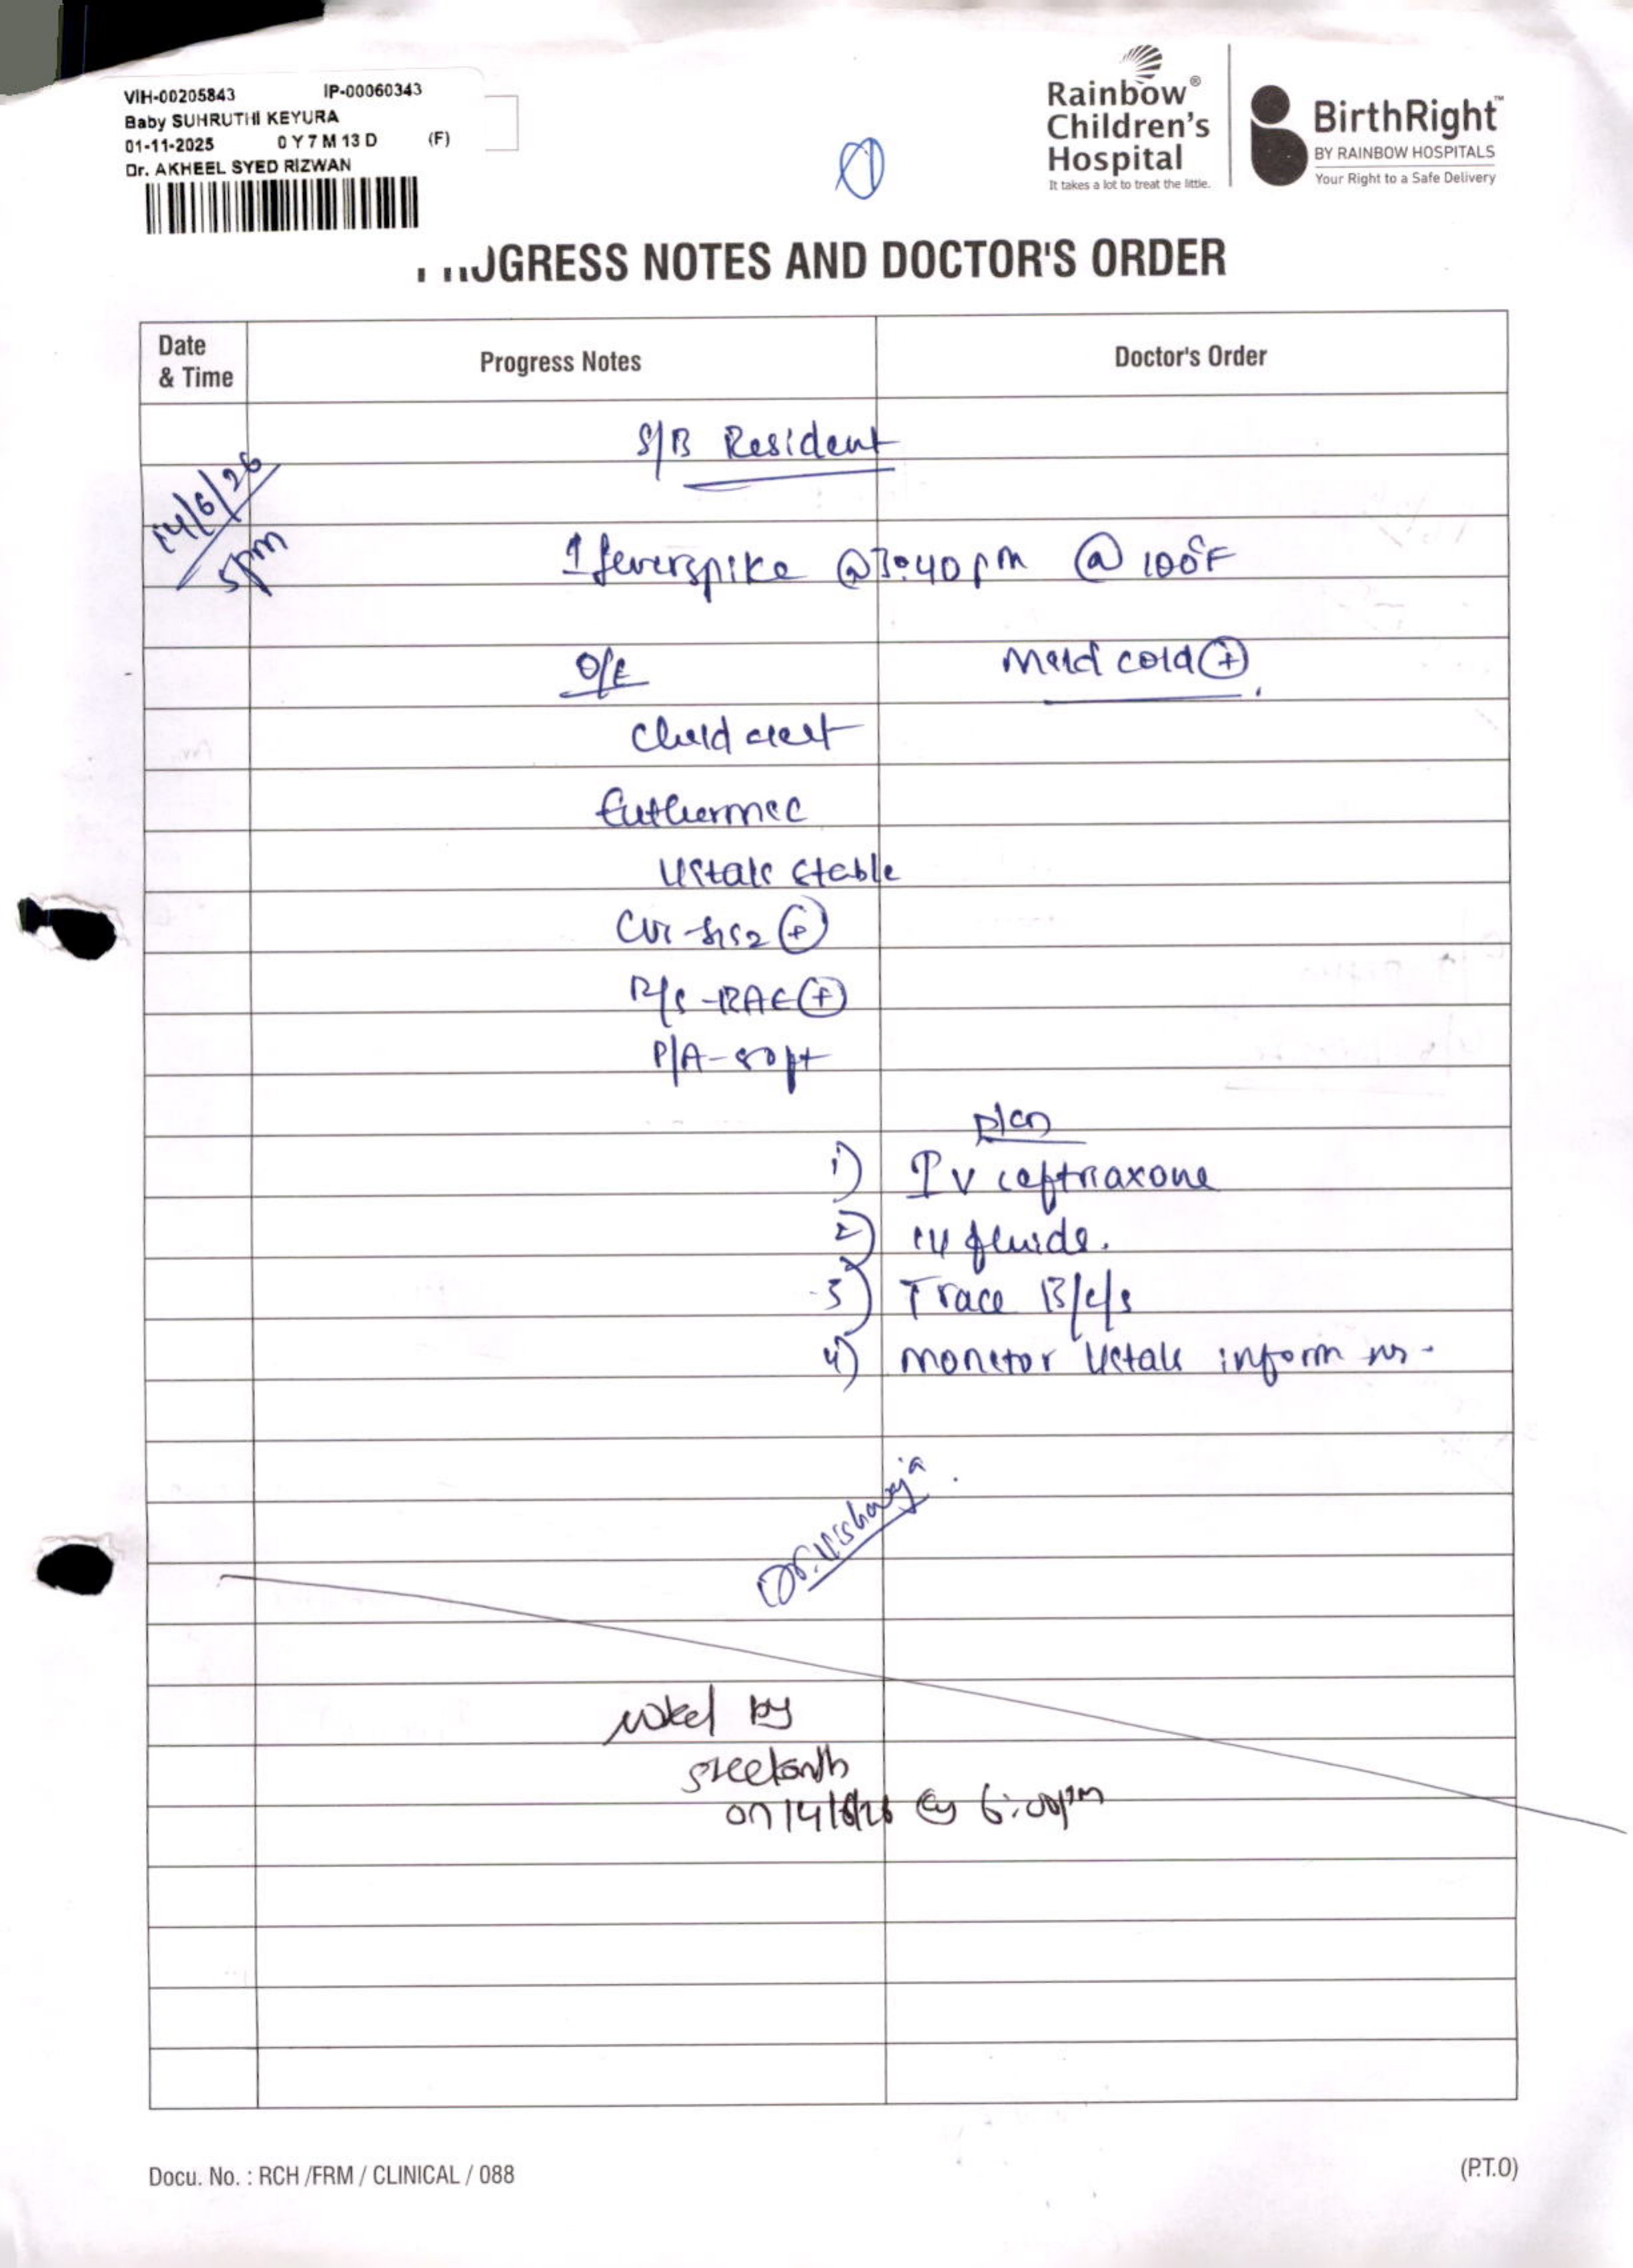 VIH-00205843 IP-00060343
Baby SUHRUTHI KEYURA
01-11-2025 0 Y 7 M 13 D (F)
Dr. AKHEEL SYED RIZWAN
Rainbow®
Children's
Hospital
It takes a lot to treat the little.
BirthRight™
BY RAINBOW HOSPITALS
Your Right to a Safe Delivery
OGRESS NOTES AND DOCTOR'S ORDER
Date
& Time
Progress Notes
Doctor's Order
S/B Resident
14/6/26
5pm
1 fever spike @ 3:40 pm @ 100°F
O/E
Mild cold (+)
Child alert
Euthermic
Vitals stable
CVS - S1S2 (+)
R/S - BAE (+)
P/A - soft
Plan
1) IV ceftriaxone
2) IV fluids.
3) Trace B/c/s
4) monitor vitals inform
Noted by
Sreekanth
on 14/6/26 @ 6:00pm
Docu. No. : RCH /FRM / CLINICAL / 088
(P.T.O)